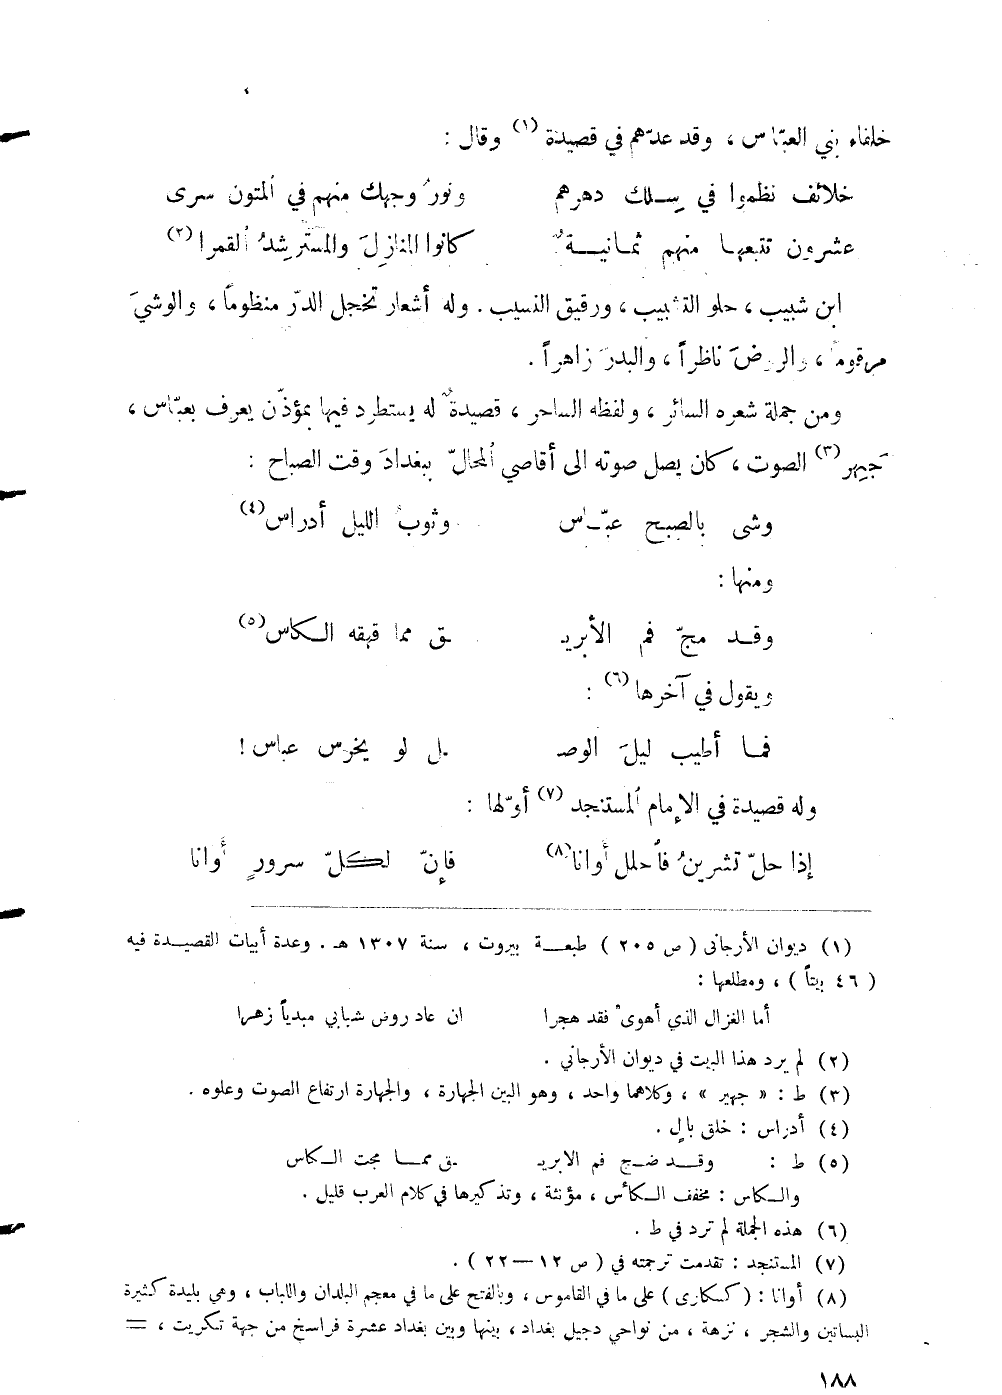 خلفاء بني العبّاس ، وقد عدّهم في قصيدة (١) وقال :
خلائف نظموا في سلك دهرهم ونورُ وجهك منهم في المتون سرى
عشرون تتبعها منهم ثمانيةٌ كانوا المنازلَ والمسترشدُ القمرا (٢)
ابن شبيب ، حلو التشبيب ، ورقيق النسيب . وله أشعار تخجل الدرّ منظوماً ، والوشيَ
مرقوماً ، والروضَ ناظراً ، والبدرَ زاهراً .
ومن جملة شعره السائر ، ولفظه الساحر ، قصيدةٌ له يستطرد فيها بمؤذّن يعرف بعبّاس ،
جَهِر (٣) الصوت ، كان يصل صوته الى أقاصي المحالّ ببغدادَ وقت الصباح :
وشى بالصبح عبّاس وثوبُ الليل أدراس (٤)
ومنها :
وقد مجّ فم الأبريـ ـق مما قهقه الكاس (٥)
ويقول في آخرها (٦) :
فما أطيب ليلَ الوصـ ـل لو يخرس عباس !
وله قصيدة في الإمام المستنجد (٧) أوّلها :
إذا حلّ تشرينُ فاحلل أوانا (٨) فإنّ لكلّ سرورٍ أوانا
(١) ديوان الأرجاني ( ص ٢٠٥ ) طبعة بيروت ، سنة ١٣٠٧ هـ . وعدة أبيات القصيدة فيه
( ٤٦ بيتاً ) ، ومطلعها :
أما الغزال الذي أهوى فقد هجرا ان عاد روض شبابي مبدياً زهرا
(٢) لم يرد هذا البيت في ديوان الأرجاني .
(٣) ط : « جهير » ، وكلاهما واحد ، وهو البين الجهارة ، والجهارة ارتفاع الصوت وعلوه .
(٤) أدراس : خلق بالٍ .
(٥) ط : وقد ضج فم الابريـ ـق مما مجت الكاس
والكاس : مخفف الكأس ، مؤنثة ، وتذكيرها في كلام العرب قليل .
(٦) هذه الجملة لم ترد في ط .
(٧) المستنجد : تقدمت ترجمته في ( ص ١٢ — ٢٢ ) .
(٨) أوانا : ( كسكارى ) على ما في القاموس ، وبالفتح على ما في معجم البلدان واللباب ، وهي بليدة كثيرة
البساتين والشجر ، نزهة ، من نواحي دجيل بغداد ، بينها وبين بغداد عشرة فراسخ من جهة تكريت ، =
١٨٨